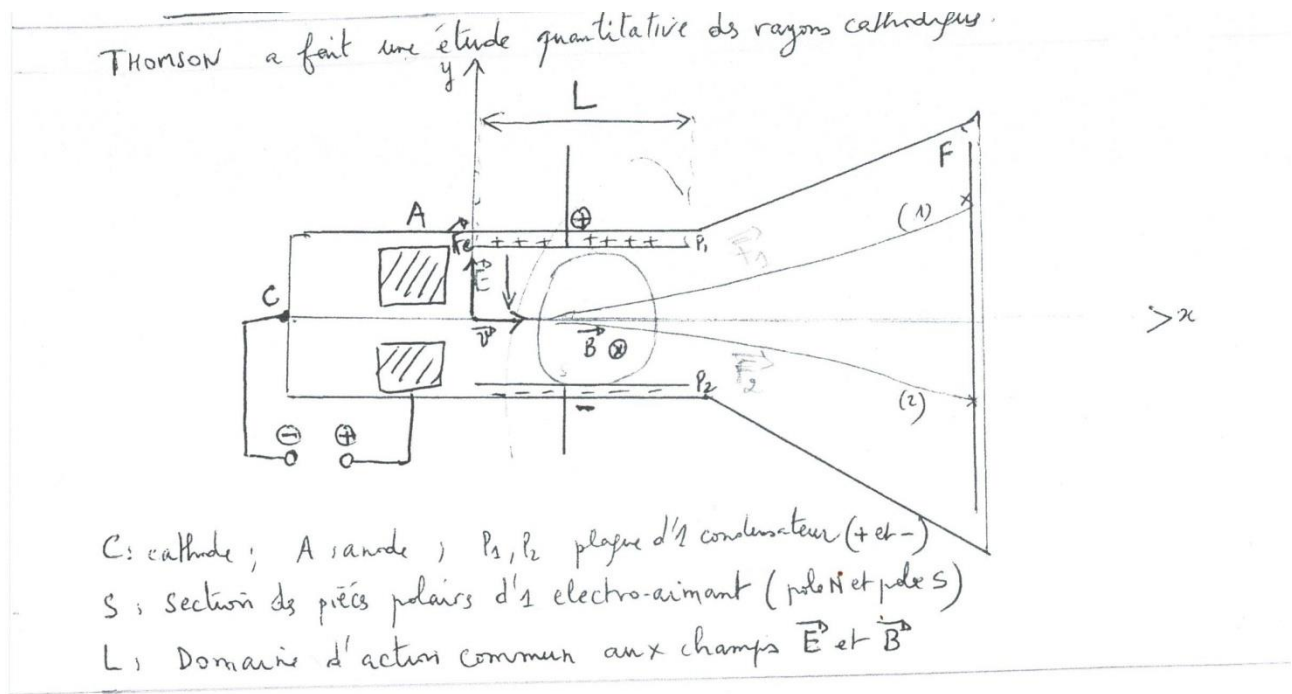 THOMSON a fait une étude quantitative ds rayons cathodiques.
y
L
F
A
(1)
Fe
+ + + + + + +
P1
F1
E
C
v
B
x
P2
F2
(2)
C: cathode ; A : anode ; P1, P2 plaque d'1 condensateur (+ et -)
S : Section ds pièces polairs d'1 electro-aimant (pole N et pole S)
L : Domaine d'action commun aux champs E et B